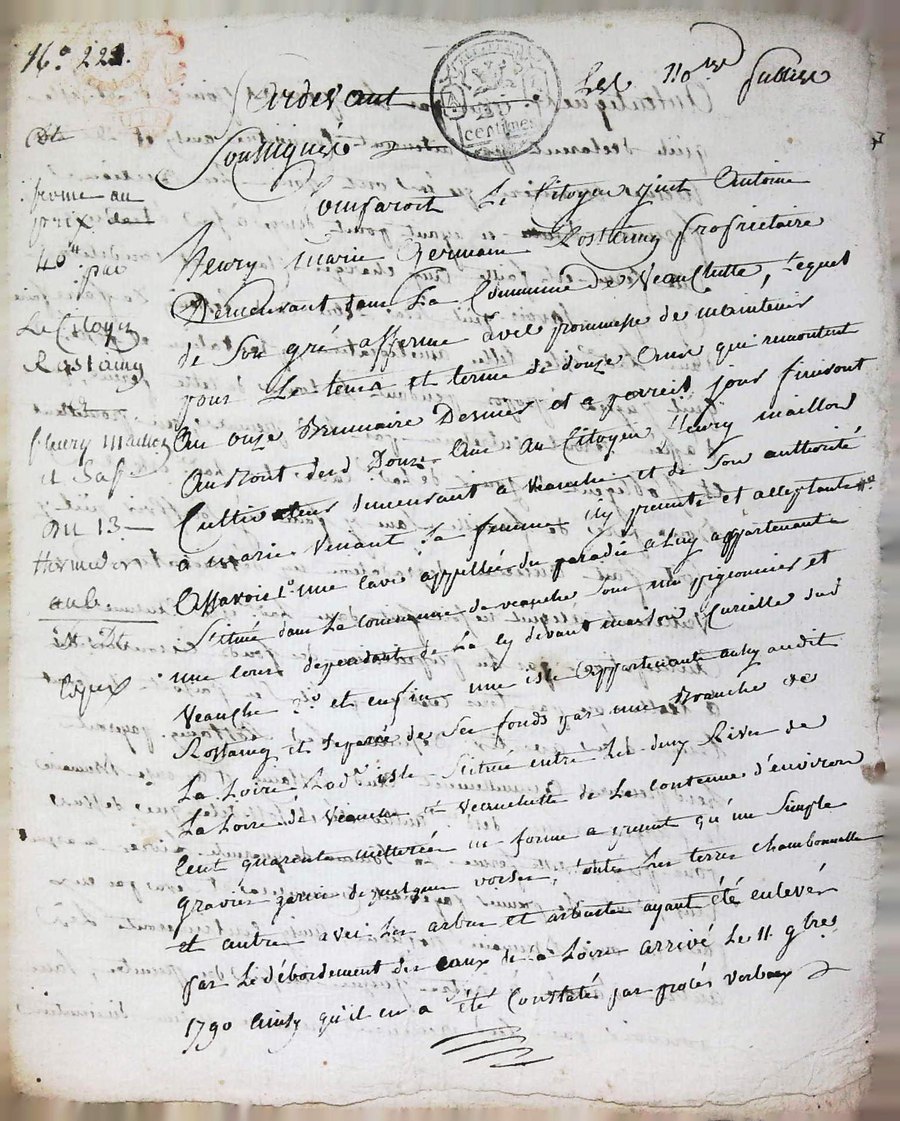 N.° 222.
Pardevant Les No.res publics
Soussignés
centimes
ferme au
prix de
40# par
Le Citoyen
Rostaing
a
fleury maillon
et Sa fe
Du 13
thermidor
an 6
Comparoit Le Citoyen Antoine
henry marie Germain Rostaing proprietaire
Demeurant dans La Commune de Veauchette, Lequel
de Son gré afferme avec promesse de maintenir
pour Le tems et terme de douze Années qui remontent
Au onze Brumaire Dernier et a pareil jour finiront
Au bout desd. Douze Ans au Citoyen fleury maillon
Cultivateur demeurant a Veauche et de Son authorité
a marie Venant Sa femme icy presents et acceptants
Assavoir 1.° une cave appellée du paradis a Luy appartenante
Située dans La Commune de veauche Sous un pigeonnier et
une Cour dependant de La cy devant maison Curialle dud.
Veauche 2.° et enfin une isle appartenante aussy audit
Rostaing et separée de Ses fonds par une Branche de
La Loire, Lad.e isle Située entre Les deux Rives de
La Loire de Veauche et Veauchette de La contenue d'environ
Cent quarante metterées ne forme a present qu'un Simple
gravier garni de quelques vorses, toutes Les terres chambonnalles
et autres avec Les arbres et arbustes ayant été enlevés
par Le débordement des eaux de la Loire arrivé Le 11 9bre
1790 ainsy qu'il en a été Constatés par procés verbaux